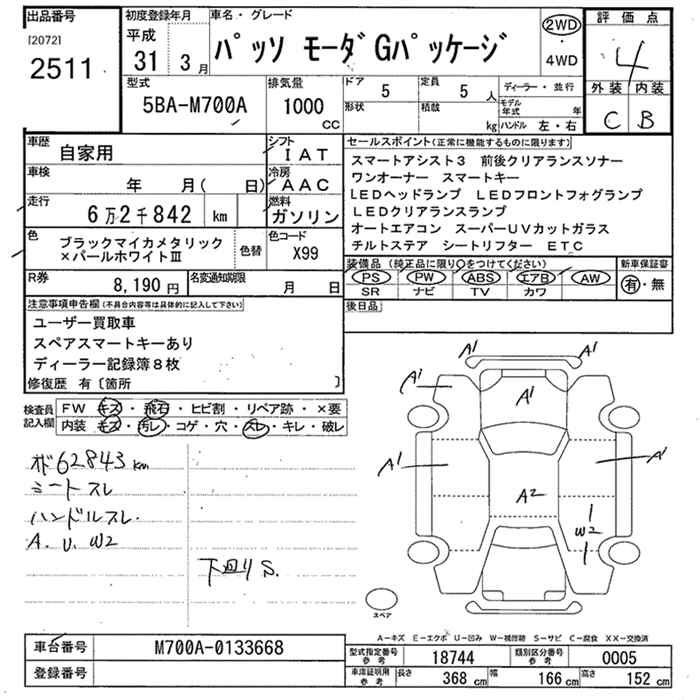 出品番号
[2072]
2511
初度登録年月
平成
31 3月
車名・グレード
パッソ モーダGパッケージ
2WD
・
4WD
評価点
4
外装 内装
C B
型式
5BA-M700A
排気量
1000
cc
ドア 5
形状
定員 5 人
積載 kg
ディーラー・並行
モデル年式 年
ハンドル 左・右
車歴
自家用
シフト
IAT
車検
年 月( 日)
冷房
AAC
走行
6万2千842 km
燃料
ガソリン
色
ブラックマイカメタリック
×パールホワイトⅢ
色替
色コード
X99
R券
8,190円
名変通知期限
月 日
セールスポイント(正常に機能するものに限ります)
スマートアシスト3 前後クリアランスソナー
ワンオーナー スマートキー
LEDヘッドランプ LEDフロントフォグランプ
LEDクリアランスランプ
オートエアコン スーパーUVカットガラス
チルトステア シートリフター ETC
装備品(純正品に限り○をつけてください)
PS PW ABS エアB AW
SR ナビ TV カワ
新車保証書
有・無
後日品
注意事項申告欄(不具合内容等は具体的に記入して下さい)
ユーザー買取車
スペアスマートキーあり
ディーラー記録簿8枚
修復歴 有〔箇所 〕
検査員
記入欄
FW キズ・飛石・ヒビ割・リペア跡・×要
内装 キズ・汚レ・コゲ・穴・スレ・キレ・破レ
オド62843km
シートスレ
ハンドルスレ.
A. U. W2
下回りS.
A1 A1
A1 A1
A1 A1
A2
W2
スペア
A−キズ E−エクボ U−凹み W−補修跡 S−サビ C−腐食 XX−交換済
車台番号 M700A-0133668
登録番号
型式指定番号
参考
18744
類別区分番号
参考
0005
車庫証明用
参考
長さ 368 cm 幅 166 cm 高さ 152 cm